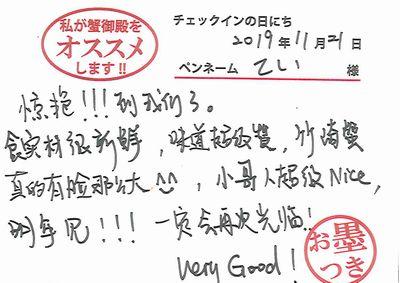 私が蟹御殿を
オススメ
します!!
チェックインの日にち
2019年11月21日
ペンネーム てい 様
惊艳!!!到我们了。
食材很新鲜,味道超级赞,竹崎蟹
真的有脸那么大^^,小哥人超级Nice,
明年见!!!一定会再次光临!
Very Good!
お墨
つき